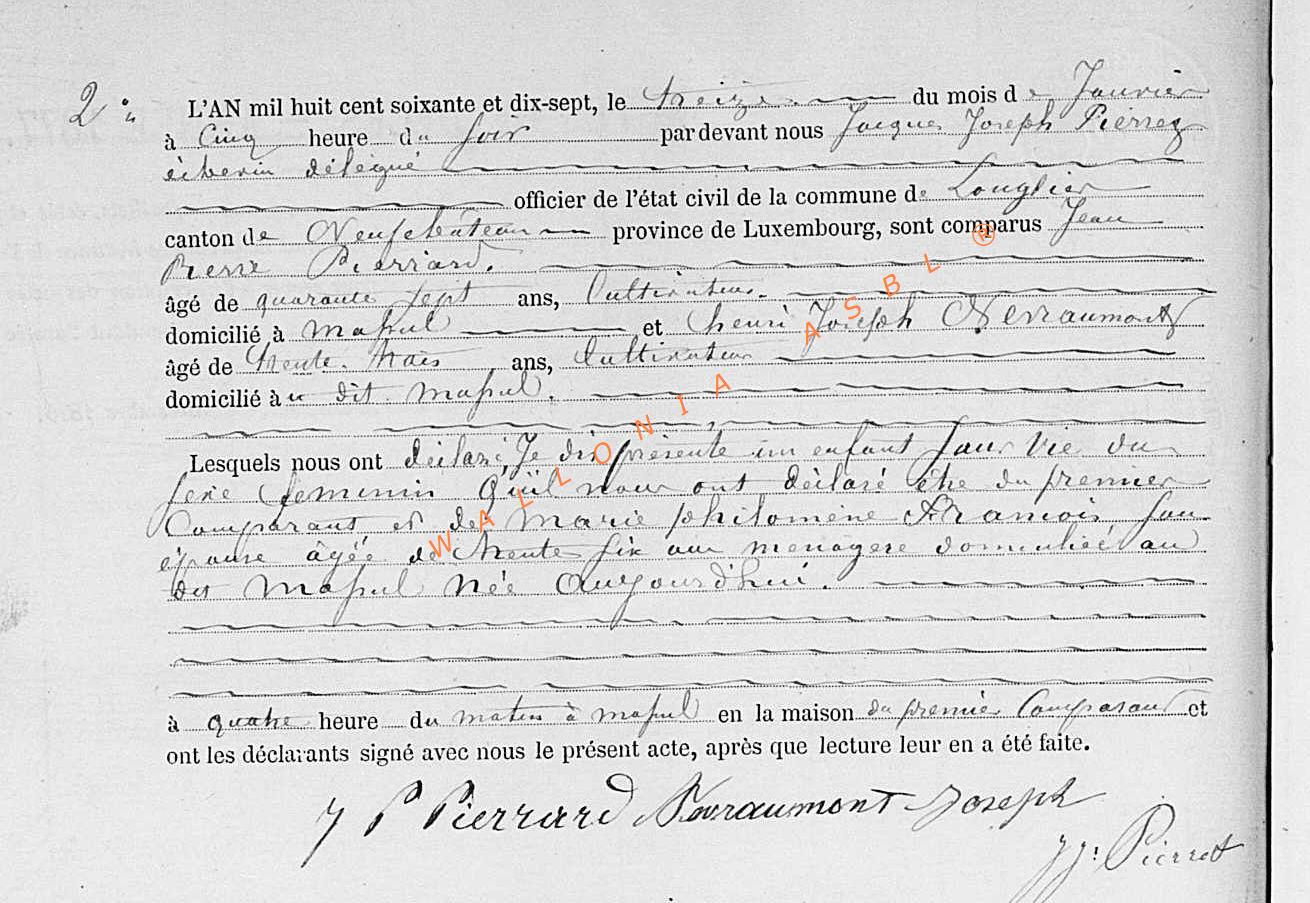 2°
L'AN mil huit cent soixante et dix-sept, le treize du mois de Janvier
à Cinq heure du soir par devant nous Jacques Joseph Pierret
échevin délégué
officier de l'état civil de la commune de Longlier
canton de Neufchâteau province de Luxembourg, sont comparus Jean
Pierre Pierrard.
âgé de quarante sept ans, Cultivateur.
domicilié à Massul et henri Joseph Nevraumont
âgé de trente trois ans, Cultivateur
domicilié à u dit Massul.
Lesquels nous ont déclaré, présenté un enfant sans vie du
sexe feminin qu'il nous ont déclaré être du premier
Comparant et de Marie philomène François, son
épouse âgée de trente six ans menagere domiciliée au
dit Massul née Aujourd'hui.
à quatre heure du matin à massul en la maison du premier Comparant et
ont les déclarants signé avec nous le présent acte, après que lecture leur en a été faite.
J P Pierrard Nevraumont Joseph
JJ: Pierret
WALLONIA ASBL ®